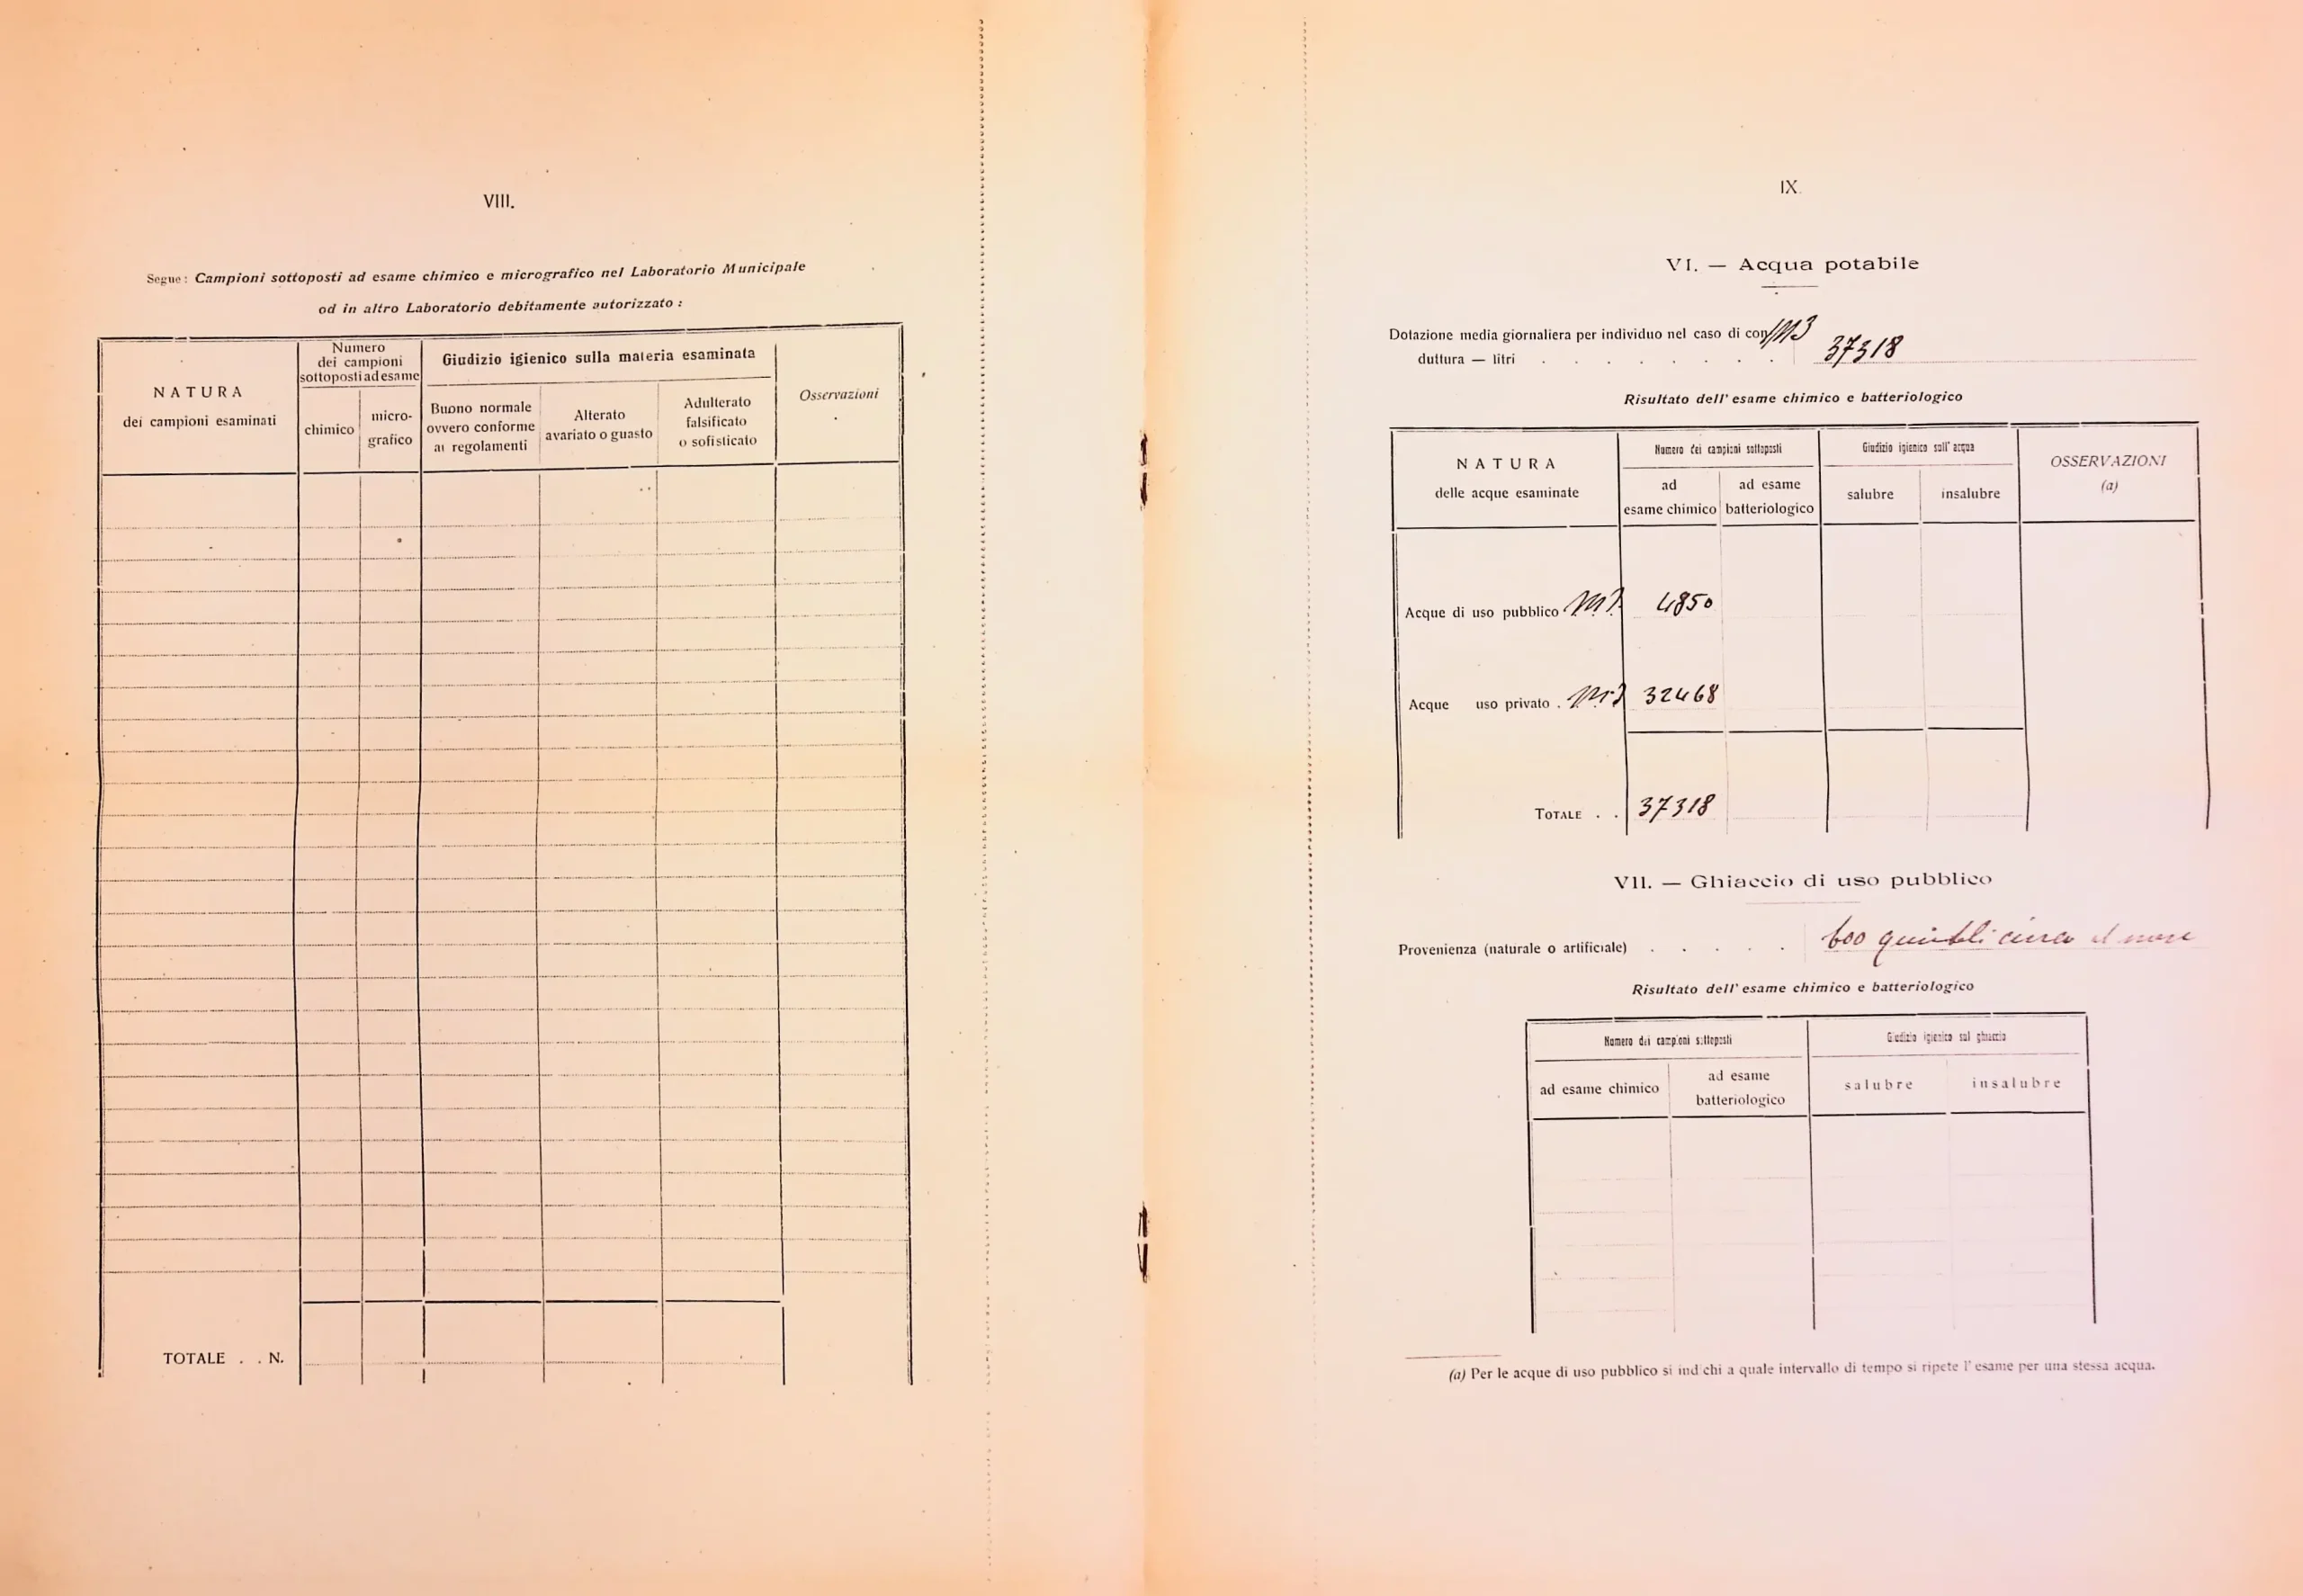 VIII.
Segue: Campioni sottoposti ad esame chimico e micrografico nel Laboratorio Municipale
od in altro Laboratorio debitamente autorizzato :
NATURA
dei campioni esaminati
Numero
dei campioni
sottoposti ad esame
chimico
micro-
grafico
Giudizio igienico sulla materia esaminata
Buono normale
ovvero conforme
ai regolamenti
Alterato
avariato o guasto
Adulterato
falsificato
o sofisticato
Osservazioni
TOTALE . . N.
IX.
VI. — Acqua potabile
Dotazione media giornaliera per individuo nel caso di con M3
duttura — litri . . . . . . . 37318
Risultato dell' esame chimico e batteriologico
NATURA
delle acque esaminate
Numero dei campioni sottoposti
ad
esame chimico
ad esame
batteriologico
Giudizio igienico sull' acqua
salubre
insalubre
OSSERVAZIONI
(a)
Acque di uso pubblico M3. 4850
Acque uso privato . M3 32468
TOTALE . . 37318
VII. — Ghiaccio di uso pubblico
Provenienza (naturale o artificiale) . . . . . 600 quintali circa al mese
Risultato dell' esame chimico e batteriologico
Numero dei campioni sottoposti
ad esame chimico
ad esame
batteriologico
Giudizio igienico sul ghiaccio
salubre
insalubre
(a) Per le acque di uso pubblico si ind chi a quale intervallo di tempo si ripete l' esame per una stessa acqua.